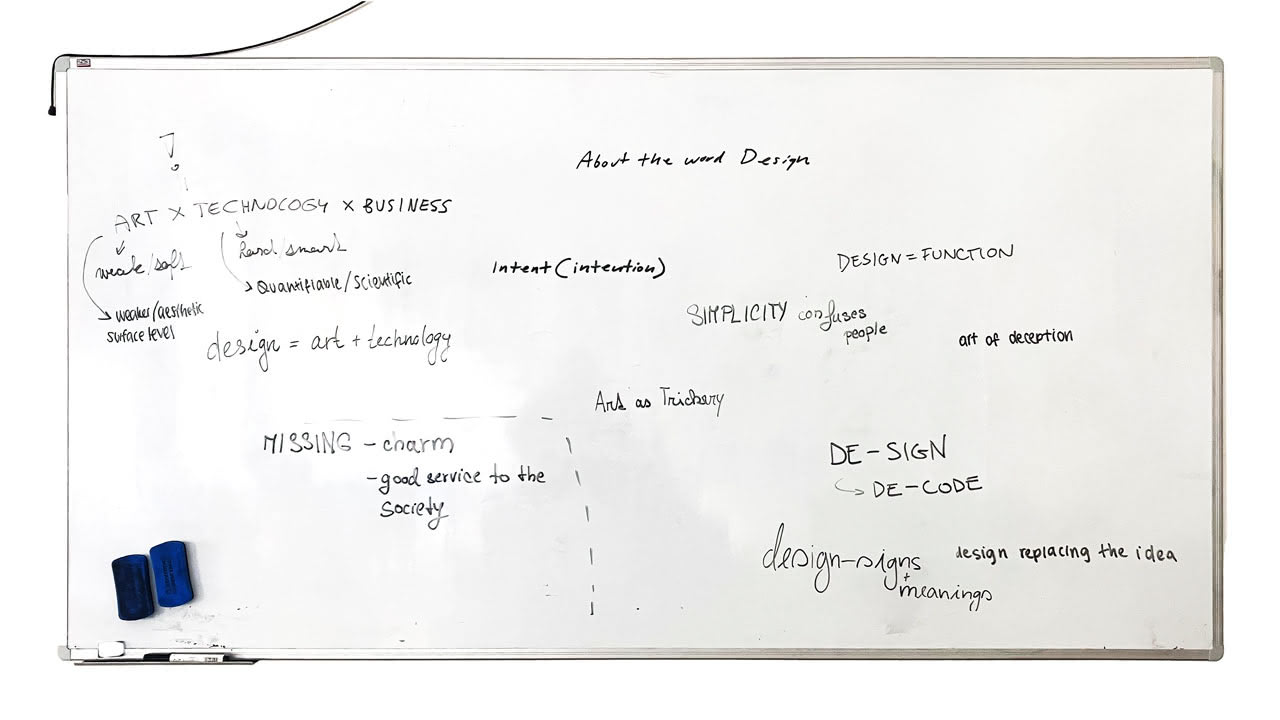 !
About the word Design
ART x TECHNOLOGY x BUSINESS
weak/soft
hard/smart
Quantifiable/Scientific
weaker/aesthetic
surface level
design = art + technology
Intent (intention)
DESIGN = FUNCTION
SIMPLICITY confuses
people
art of deception
Art as Trickery
MISSING - charm
- good service to the
society
DE-SIGN
DE-CODE
design-signs
+
meanings
design replacing the idea